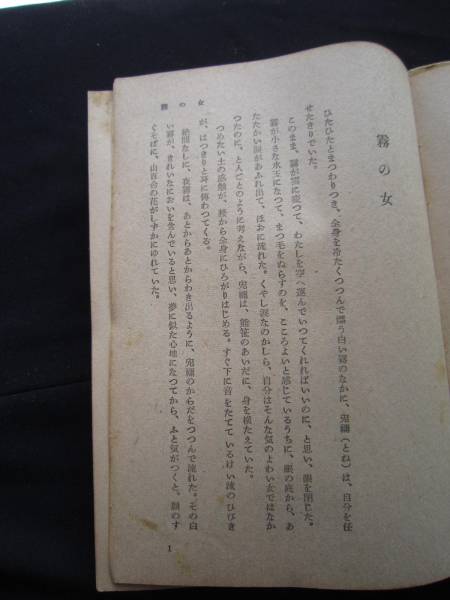 霧の女
霧の女
ひたひたとまつわりつき、全身を冷たくつつんで漂う白い霧のなかに、兎緬(とね)は、自分を任
せたきりでいた。
このまま、霧が雲に変つて、わたしを空へ運んでいつてくれればいいのに、と思い、眼を閉じた。
霧が小さな水玉になつて、まつ毛をぬらすのを、こころよいと感じているうちに、眼の底から、あ
たたかい涙があふれ出て、ほおに流れた。くやし涙なのかしら、自分はそんな気のよわい女ではなか
つたのに。と人ごとのように考えながら、兎緬は、熊笹のあいだに、身を横たえていた。
つめたい土の感触が、腰から全身にひろがりはじめる。すぐ下に音をたてているけい流のひびき
が、はつきりと耳に傳わつてくる。
絶間なしに、夜霧は、あとからあとからわき出るように、兎緬のからだをつつんで流れた。その白
い霧が、きれいなにおいを含んでいると思い、夢に似た心地になつてから、ふと気がつくと。顔のす
ぐそばに、山百合の花がしずかにゆれていた。
1